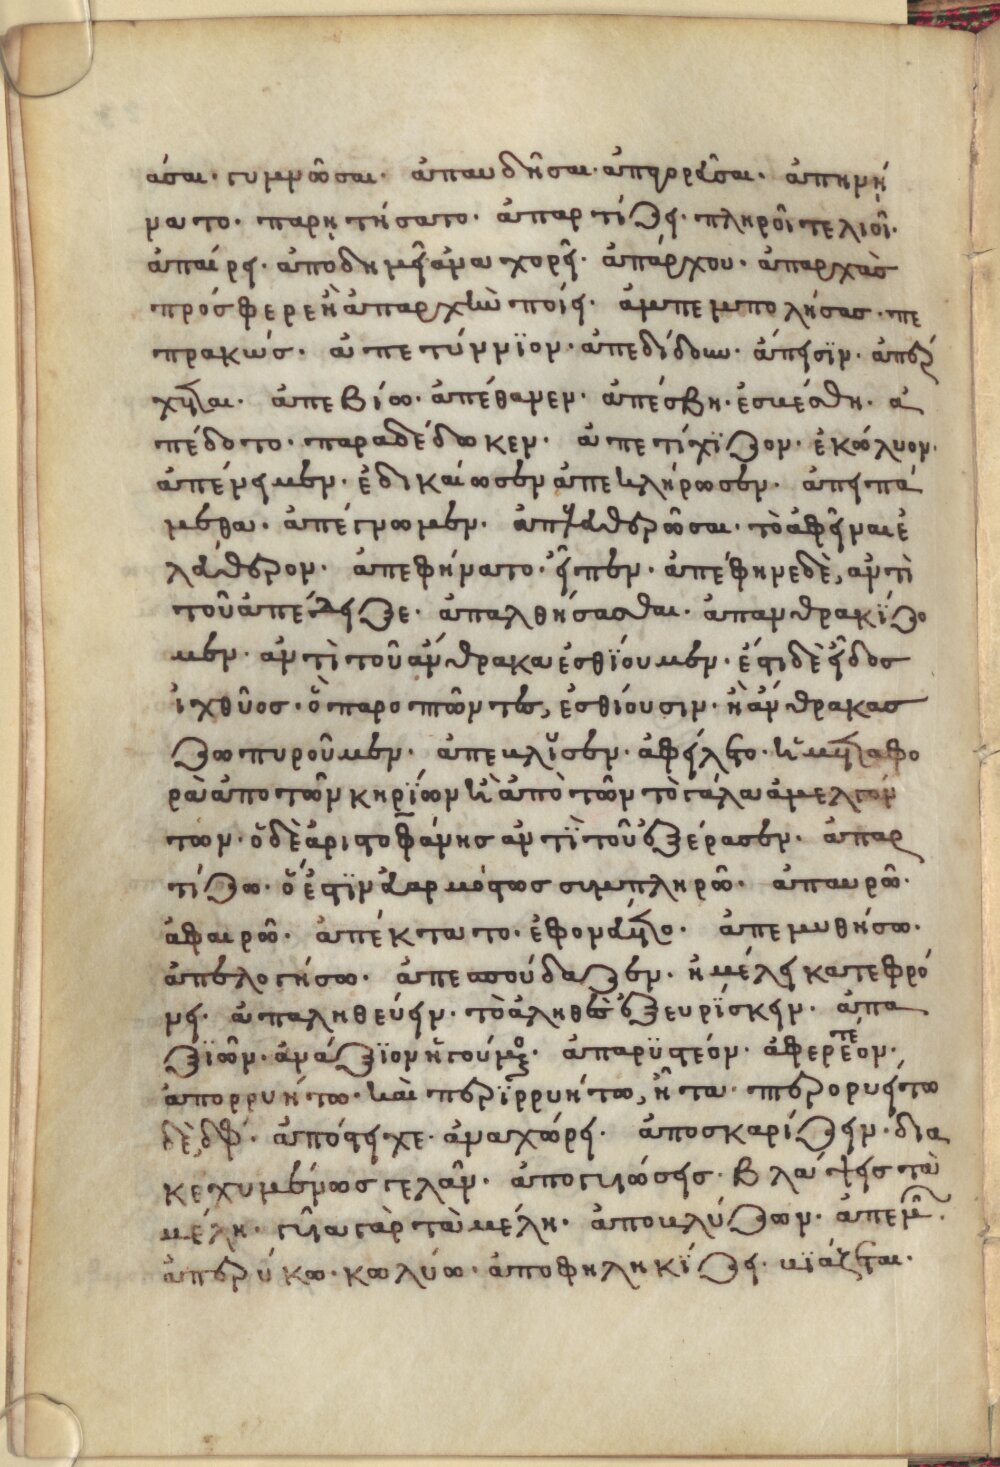 άσαι· γυμνῶσαι· ἀπαυδῆσαι· ἀπορρεῦσαι· ἀπηνή
νατο· παρητήσατο· ἀπαρτίζει· πληροῖ τελειοῖ·
ἀπαίρει· ἀποδημεῖ ἀναχορεῖ· ἀπάρχου· ἀπαρχὰς
πρόσφερε ἢ ἀπαρχὴν ποίει· ἀμπεμπολήσας· πε
πρακώς· ἀπετύννϊον· ἀπεδίδουν· ἀπήεσϊν· ἀπέρ
χεται· ἀπεβίω· ἀπέθανεν· ἀπέσβη· ἐσκέσθη· ἀ
πέδοτο· παραδέδωκεν· ἀπετίχϊζον· ἐκώλυον·
ἀπένειμεν· ἐδικαίωσεν ἀπεκλήρωσεν· ἀπειπά
μεθα· ἀπέγνωμεν· ἀπελευθερῶσαι· τὸ ἀφεῖναι ἐ
λεύθερον· ἀπεφήνατο· εἶπεν· ἀπέφηνε δὲ, ἀντὶ
τοῦ ἀπέδειξε· ἀπαλθήσασθαι· ἀπανθρακίζο
μεν· ἀντὶ τοῦ ἄνθρακα ἐσθϊουμεν· ἔστι δὲ εἶδος
ἰχθῦος· ὃ παροπτῶντες, ἐσθίουσιν· ἢ ἄνθρακας
ζωπυροῦμεν· ἀπεκλϊσεν· ἀφείλετο· ἡ μεταφο
ρὰ ἀπο τῶν κηρϊων ἢ ἀπὸ τῶν τὸ γάλα ἀμελγόν
των· ὁ δὲ ἀριστοφάνης ἀντὶ τοῦ ἐξέρασεν· ἀπαρ
τίζω· ὅ ἐστϊν εὐαρμόστως συμπληρῶ· ἀπαυρῶ·
ἀφαιρῶ· ἀπέκτατο· ἐφονεύετο· ἀπεμυθήσω·
ἀπελογήσω· ἀπεσπούδαζεν· ἠμέλει κατεφρό
νει· ἀπαληθεύειν· τὸ ἀληθὲς ἐξευρϊσκειν· ἀπα
ξϊῶν· ἀνάξϊον ἡγούμενος· ἀπαρϋστέον· ἀφερετέον·
ἀπορρυήτω· καὶ περϊρρυήτω, εἶτα· περορυέτω
δὲ, δφ· ἀπόστειχε· ἀναχώρει· ἀποσκαρίζειν· δια
κεχυμένως γελᾶν· ἀπογυιώσεις· βλάψεις τὰ
μέλη· γυῖα γὰρ τὰ μέλη· ἀποκλύζων· ἀπεμ·
ἀπερύκω· κωλύω· ἀποφηληκίζει· κϊάζεται·